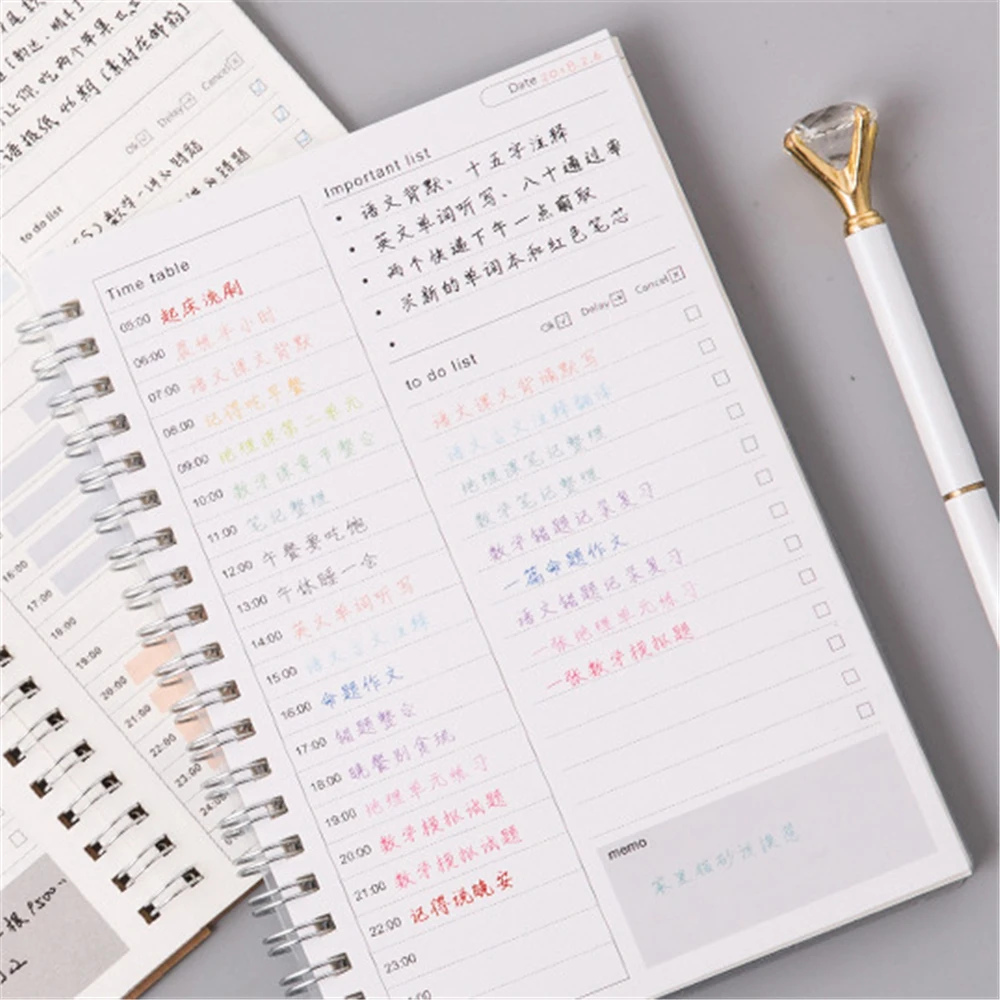 语报纸 46期 [素材在邮箱]
Ok Delay Cancel
to do list
16:00
17:00
18:00
19:00
20:00
21:00
22:00
23:00
24:00
Date 2018.2.6
Important list
• 语文背默、十五字注释
• 英文单词听写、八十通过率
• 两个快递下午一点前取
• 买新的单词本和红色笔芯
•
Ok Delay Cancel
Time table
05:00 起床洗刷
06:00 晨练半小时
07:00 语文课文背默
08:00 记得吃早餐
09:00 地理课第二单元
10:00 数学课章节整合
11:00 笔记整理
12:00 午餐要吃饱
13:00 午休睡一会
14:00 英文单词听写
15:00 语文古文注释
16:00 命题作文
17:00 错题整合
18:00 晚餐别贪玩
19:00 地理单元练习
20:00 数学模拟试题
21:00 数学模拟试题
22:00 记得说晚安
23:00
to do list
语文课文背诵默写
语文古文注释翻译
地理课笔记整理
数学笔记整理
数学错题记录复习
一篇命题作文
语文错题记录复习
一张地理单元练习
一张数学模拟题
memo
家里猫砂该换忍